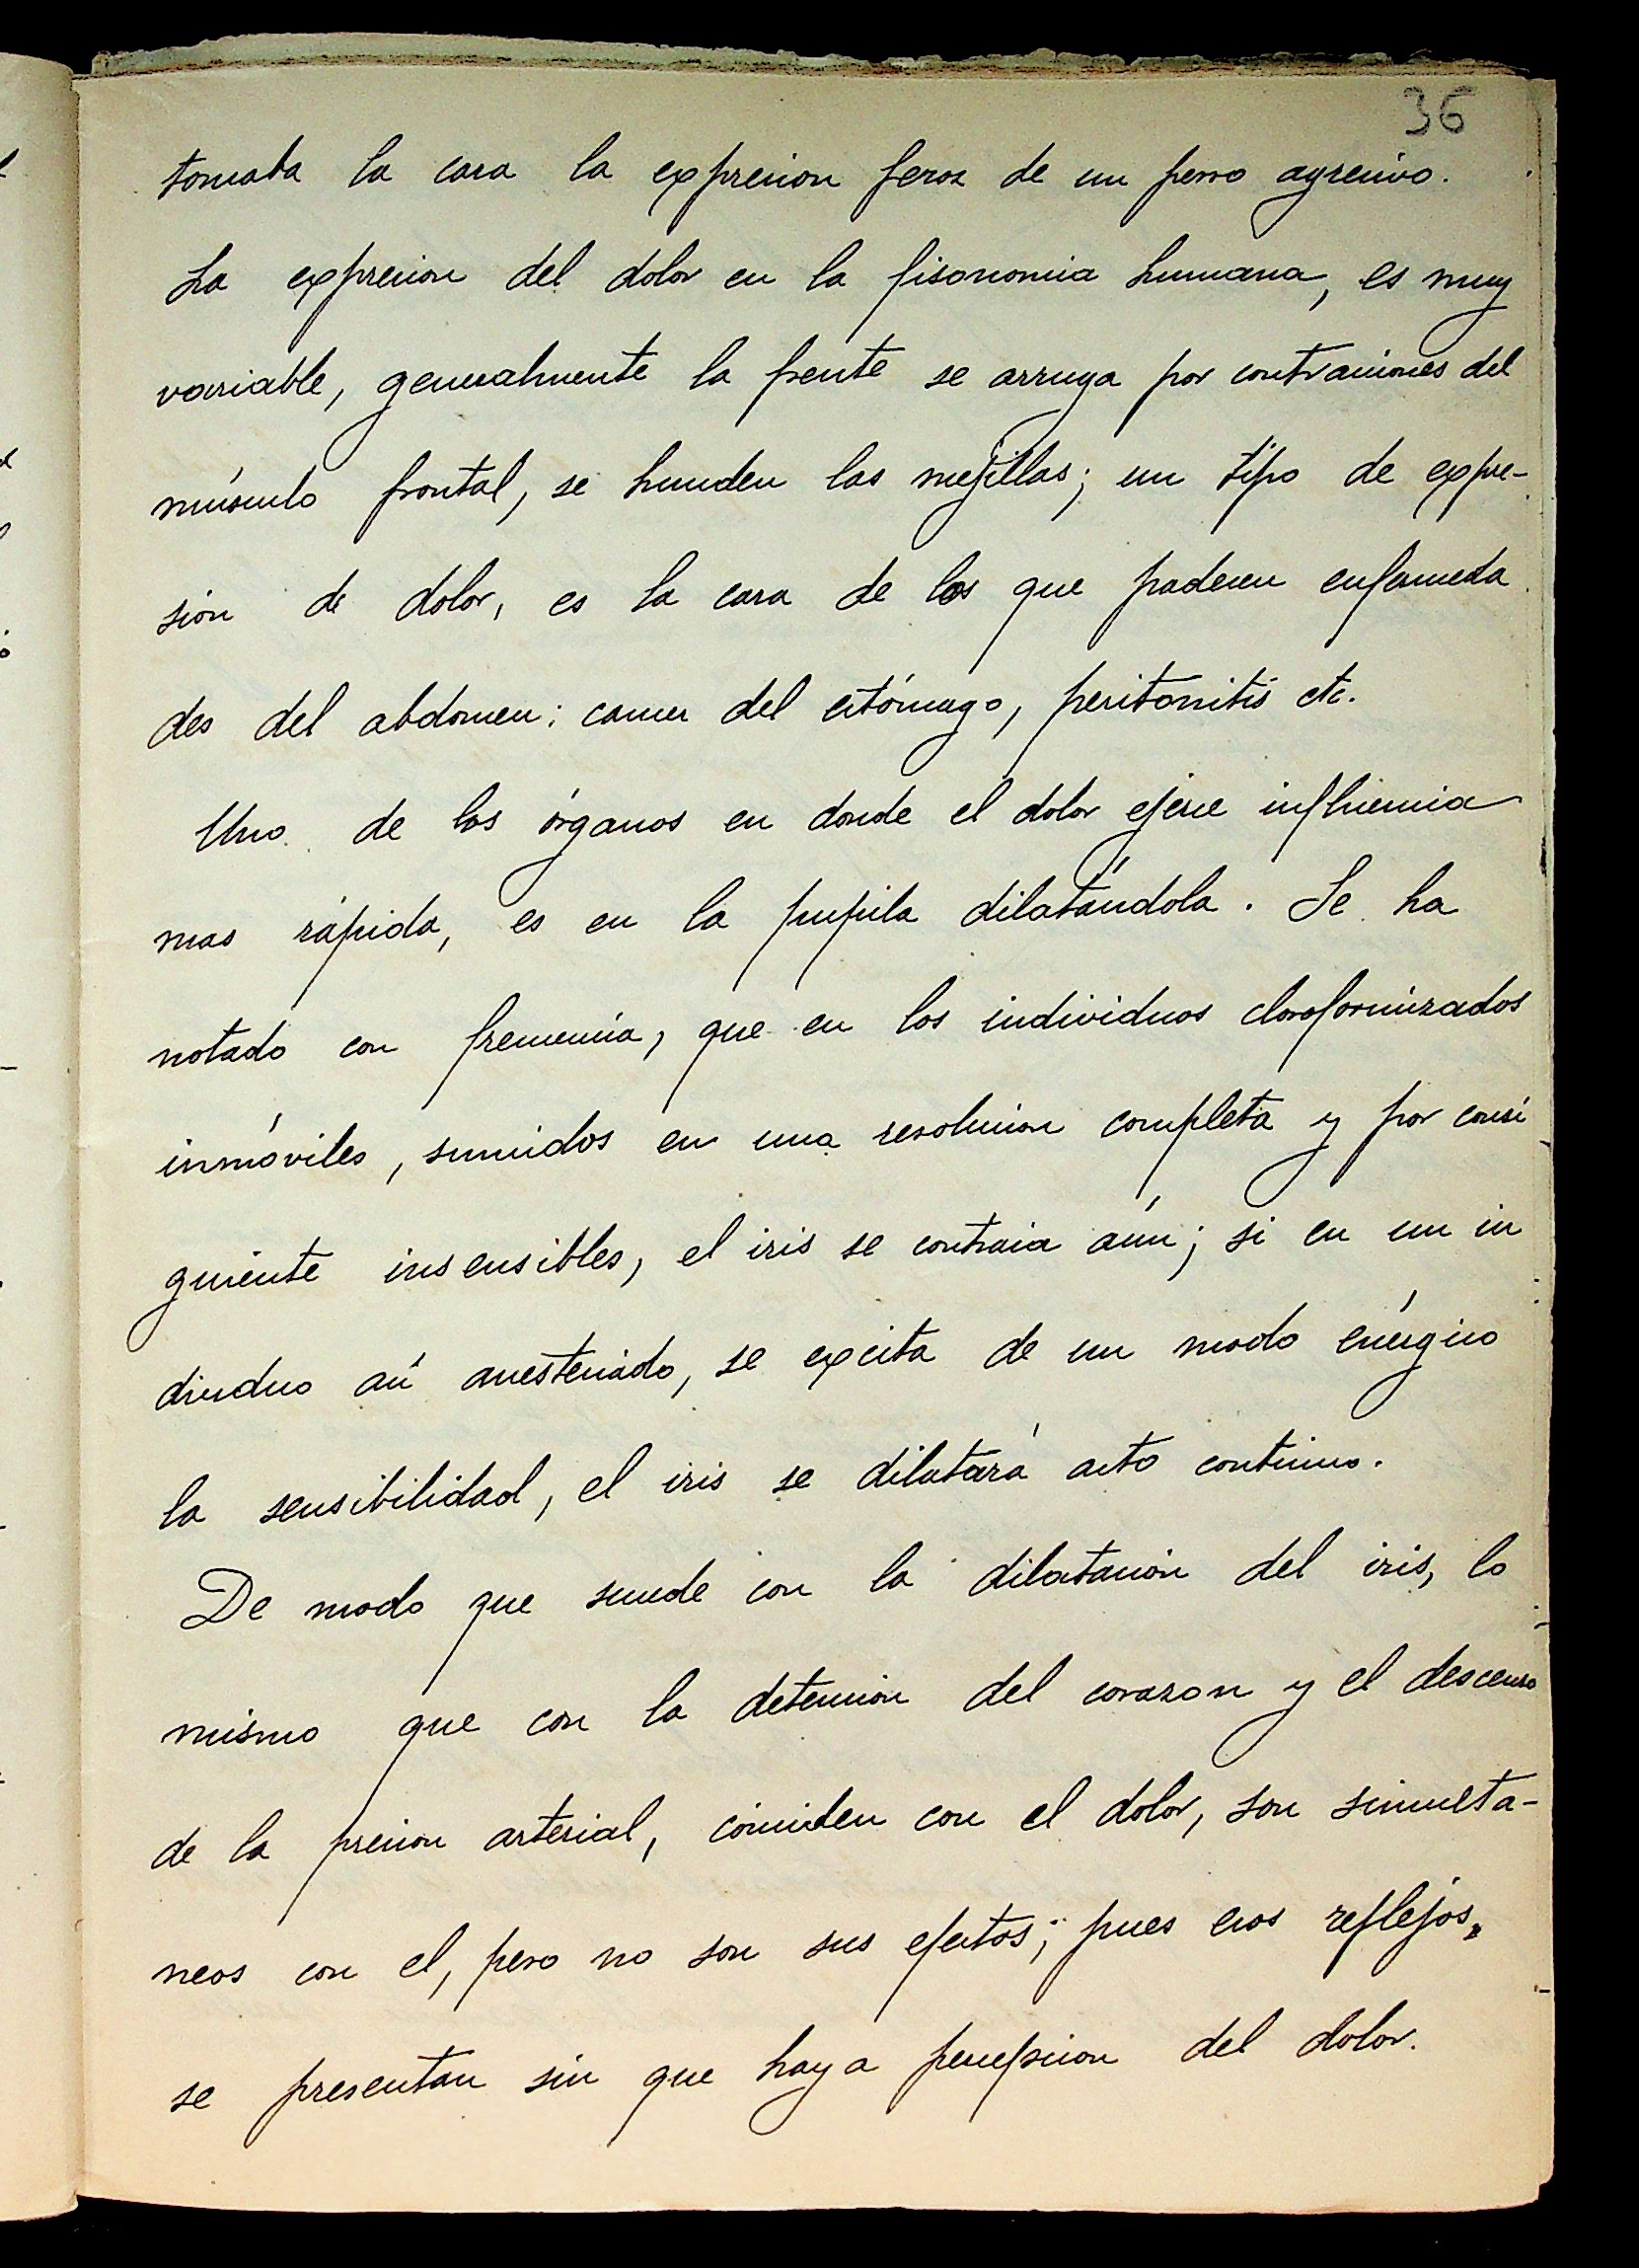 36
tomaba la cara la expresion feroz de un perro agresivo.
La expresion del dolor en la fisonomia humana, es muy
variable, generalmente la frente se arruga por contraciones del
músculo frontal, se hunden las mejillas; un tipo de expre-
sión de dolor, es la cara de los que padecen enfermeda
des del abdomen: cancer del estómago, peritonitis etc.
Uno de los órganos en donde el dolor ejerce influencia
mas rápida, es en la pupila dilatándola. Se ha
notado con frecuencia, que en los individuos cloroformizados
inmóviles, sumidos en una resolucion completa y por consi
guiente insensibles, el iris se contraia aún; si en un in
dividuo asi anestesiado, se excita de un modo enérgico
la sensibilidad, el iris se dilatará acto continuo.
De modo que sucede con la dilatación del iris, lo
mismo que con la detención del corazon y el descenso
de la presion arterial, coinciden con el dolor, son simulta-
neos con el, pero no son sus efectos; pues esos reflejos,
se presentan sin que haya percepcion del dolor.